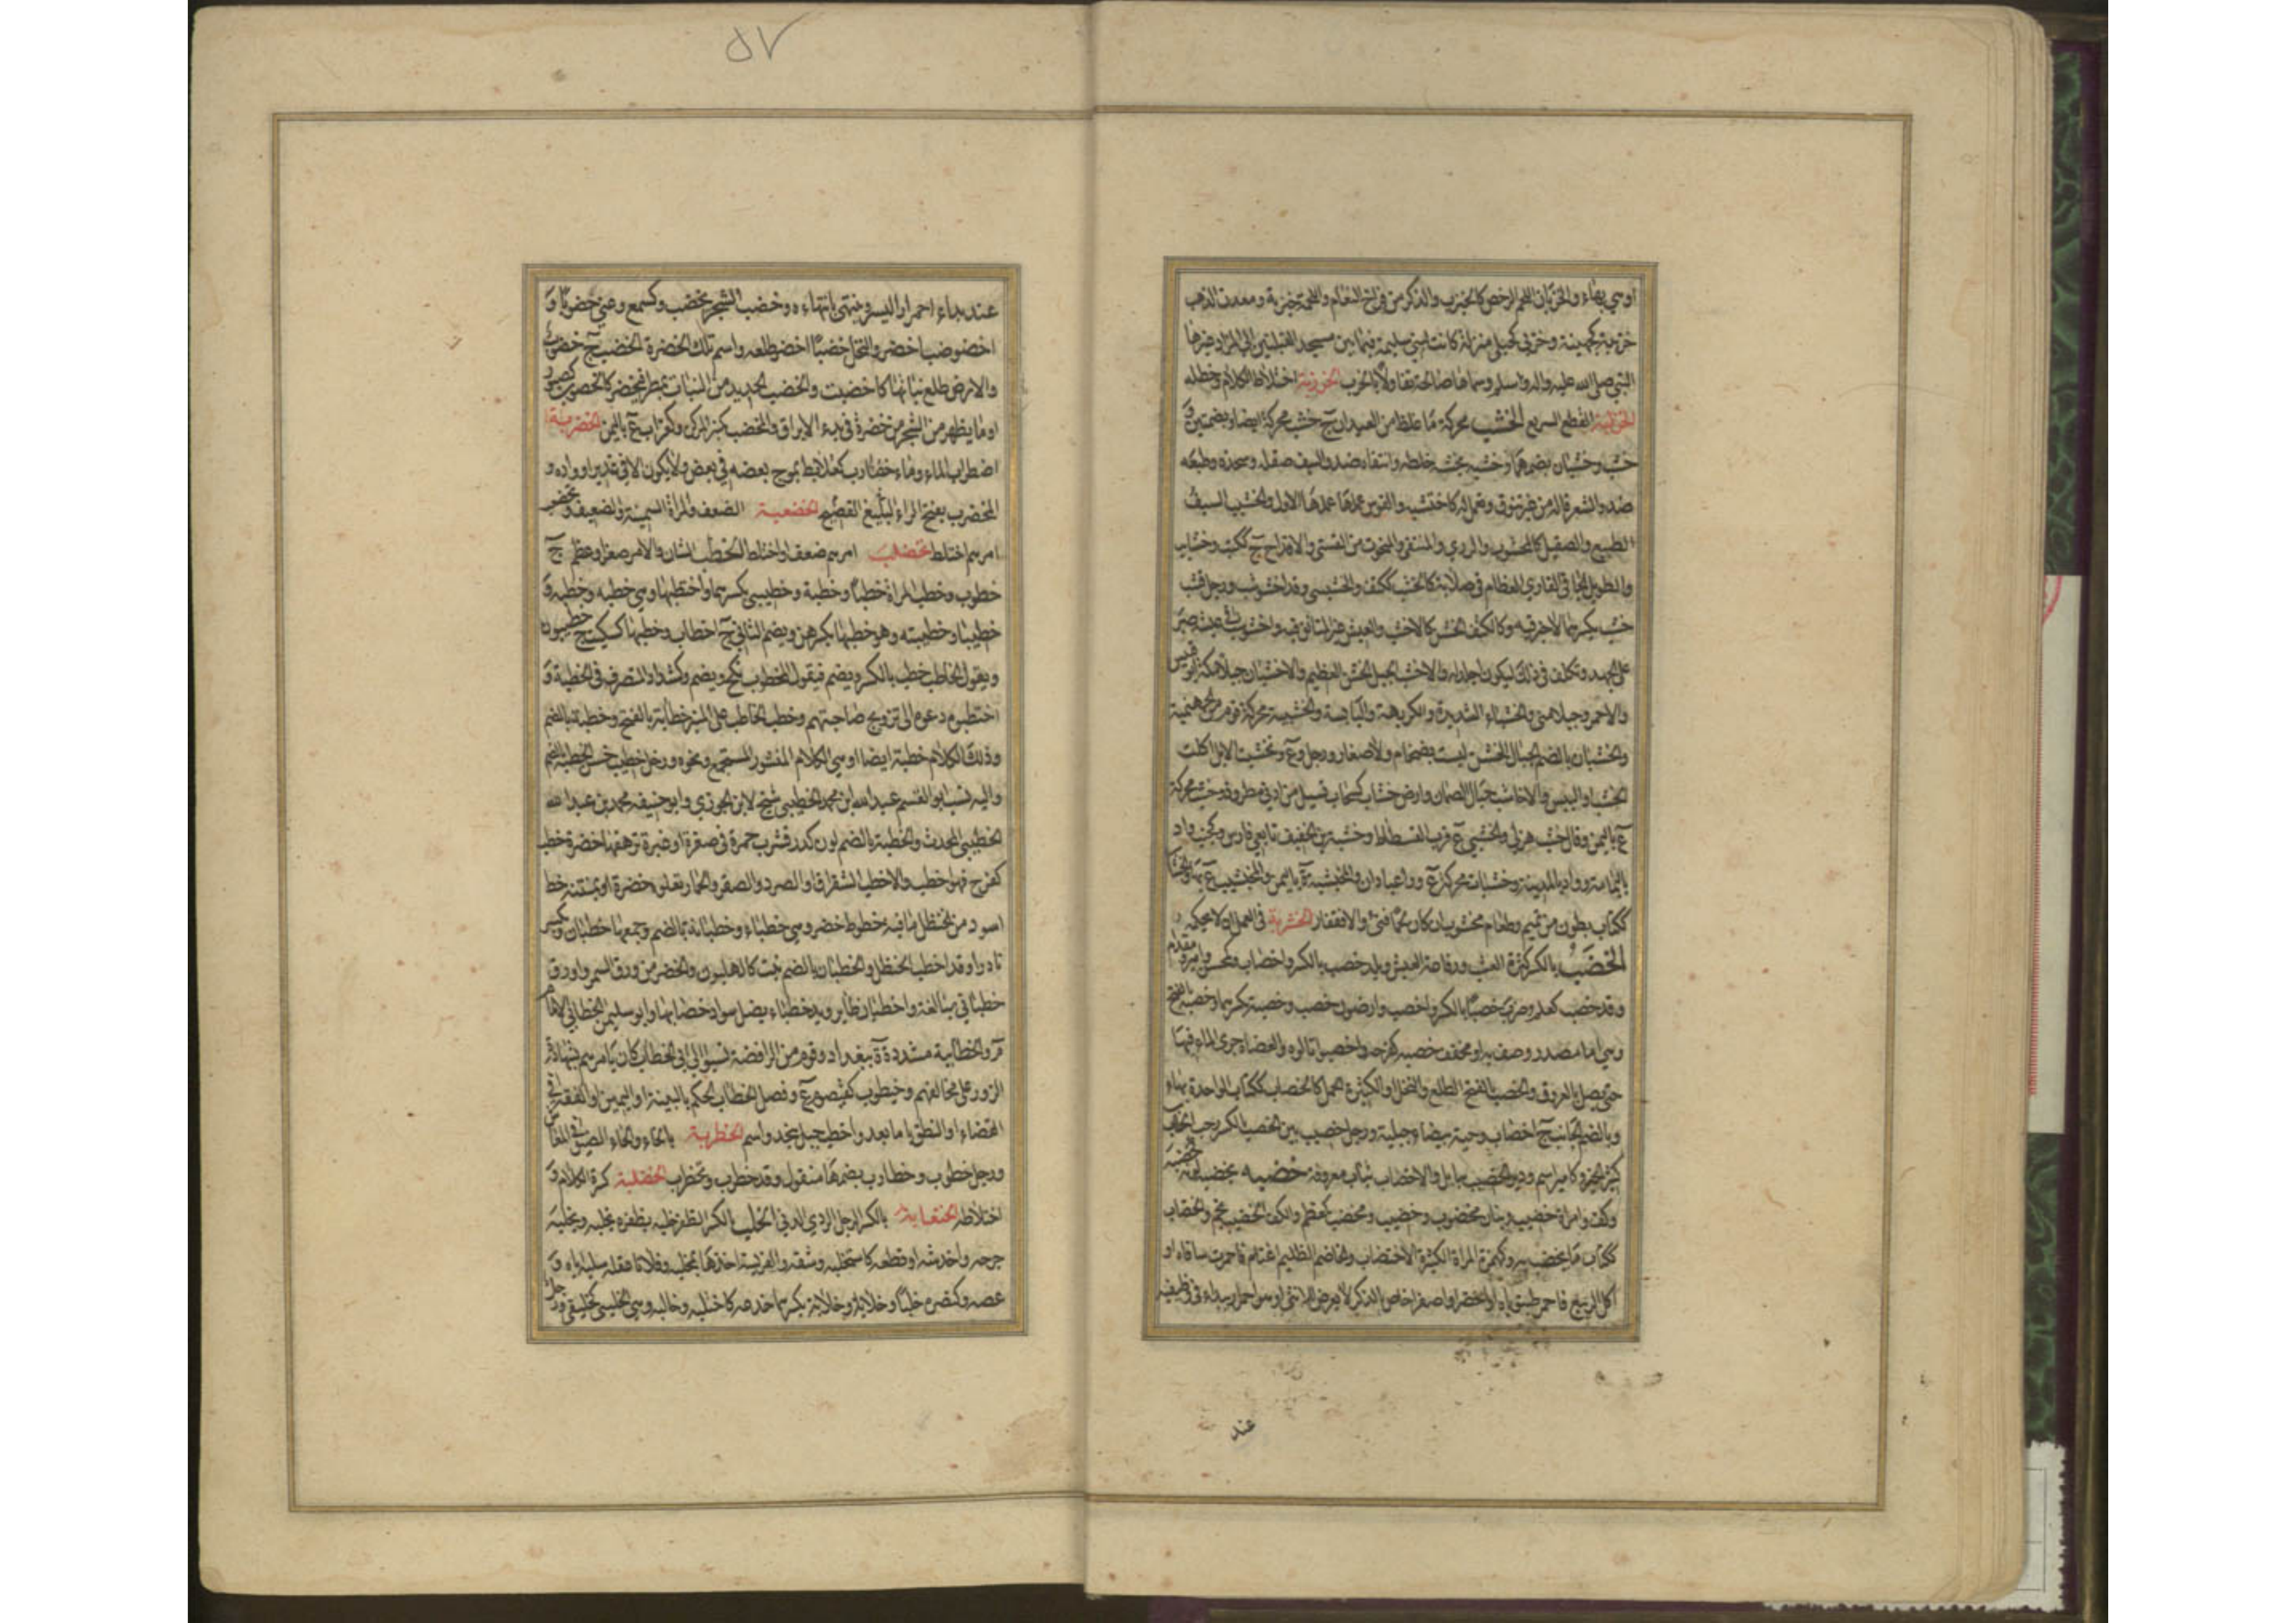 او هي بهاء والخزبان اللحم الرخص كالخيزب والذكر من فراخ النعام واللحمة خيزبة ومعدن الذهب
خزيبة كجهينة وخزبى كحبلى منزلة كانت لبني سليمة فيما بين مسجد القبلتين الى المذاد غيرها
النبي صلى الله عليه واله وسلم وسماها صالحة تفاولا بالخزب الخزربة اختلاط الكلام وخطله
الخزلبة القطع السريع الخشب محركة ما غلظ من العيدان ج خشب محركة ايضا وبضمتين و
خشب وخشبان بضمهما وخشبه يخشبه خلطه وانتقاه ضد والسيف صقله وشحذه وطبعه
ضد والشعر قاله من غير تنوق وتعمل له كاختشبه والقوس عملها عملها الاول والخشيب السيف
الطبيع والصقيل كالمخشوب والردي والمنتقى والمنحوت من القسي والاقداح ج ككتب وخشايب
والطويل الجافي العاري العظام في صلابة كالخشب ككتف والخشيبي وقد اخشوشب ورجل قشب
خشب بكسرهما لا خير فيه وككتف الخشن كالاخشب والعيش غير المتانق فيه واخشوشب في عيشه صبر
على الجهد وتكلف في ذلك ليكون اجلد له والاخشب الجبل الخشن العظيم والاخشبان جبلا مكة ابو قبيس
والاحمر وجبلا منى والخشباء الشديدة والكريهة واليابسة والخشبية محركة قوم من الجهمية
والخشبان بالضم الجبال الخشن ليست بضخام ولا صغار ورجل وع وتخشبت الابل اكلت
الخشب او اليبيس والاخاشب جبال الصمان وارض خشاب كسحاب تسيل من ادنى مطر وذو خشب محركة
ع باليمن ومال خشب هزلى والخشبي ع قرب الفسطاط وخشبة بن الخفيف تابعي فارس وكجنب واد
باليمامة وواد بالمدينة وخشبات محركة ع وراء عبادان والخيشبة ة باليمن والمخيشيب ع بها والخشاب
ككتاب بطون من تميم وطعام مخشوب ان كان لحما فنئ والا فقفار الخشربة في العمل ان لا يحكمه
الخصب بالكسر كثرة العشب ورفاهة العيش وبلد خصب بالكسر واخصاب وكمحسن وامير ومقدام
وقد خصب كعلم وضرب خصبا بالكسر واخصب وارضون خصب وخصبة بكسرهما وخصبة بالفتح
وهي اما مصدر وصف به او مخفف خصبة كفرحة واخصبوا نالوه والعضاه جرى الماء فيها
حتى يصل بالعروق والخصب بالفتح الطلع والنخل او الكثيرة الحمل كالخصاب ككتاب الواحدة بهاء
وبالضم الجانب ج اخصاب وحية بيضاء جبلية ورجل خصيب بين الخصب بالكسر رحب الجناب
كثير الخير وكامير اسم ودير الخصيب ببابل والاخصاب ثياب معروفة خضبه يخضبه لونه كخضبه
وكف وامراة خضيب وبنان مخضوب وخضيب ومخضب كمعظم والكف الخضيب نجم والخضاب
ككتاب ما يختضب به وكهمزة المراة الكثيرة الاختضاب والخاضب الظليم اغتلم فاحمرت ساقاه او
اكل الربيع فاحمر ظنبوباه او اخضرا او اصفرا خاص بالذكر لا يعرض للانثى او هو احمرار يبداء في وظيفيه
عند
٥٧
عند بداء احمرار البسر وينتهي بانتهاءه وخضب الشجر يخضب وكسمع وعني خضوبا و
اخضوضب اخضر والنخل خضبا اخضر طلعه واسم تلك الخضرة الخضب ج خضوب
والارض طلع نباتها كاخضبت والخضب الجديد من النبات يمطر فيخضر كالخضوب كصبور
او ما يظهر من الشجر من خضرة في بدء الايراق والمخضب كمنبر المركن وكغراب ع باليمن الخضربة
اضطراب الماء وماء خضارب كعلابط يموج بعضه في بعض ولا يكون الا في غدير او واده و
المخضرب بفتح الراء البليغ الفصيح الخضعبة الضعف والمراة السمينة والضعيفة وتخضعب
امرهم اختلط تخضلب امرهم ضعف او اختلط الخطب الشان والامر صغر او عظم ج
خطوب وخطب المراة خطبا وخطبة وخطيبى بكسرهما واختطبها وهي خطبه وخطبته و
خطيباه وخطيبته وهو خطبها بكسرهن ويضم الثاني ج اخطاب وخطيبها كسكيت ج خطيبون
ويقول الخاطب خطب بالكسر ويضم فيقول المخطوب نكح ويضم وكشداد المتصرف في الخطبة و
اختطبوه دعوه الى تزويج صاحبتهم وخطب الخاطب على المنبر خطابة بالفتح وخطبة بالضم
وذلك الكلام خطبة ايضا او هي الكلام المنثور المسجع ونحوه ورجل خطيب حسن الخطبة بالضم
واليه نسب ابو القسم عبد الله بن محمد الخطيبي شيخ لابن الجوزي وابو حنيفة محمد بن عبد الله
الخطيبي المحدث والخطبة بالضم لون كدر مشرب حمرة في صفرة او غبرة ترهقها خضرة خطب
كفرح فهو اخطب والاخطب الشقراق او الصرد والصقر والحمار تعلوه خضرة او بمتنه خط
اسود من الحنظل ما فيه خطوط خضر وهي خطباء وخطبانة بالضم وجمعها خطبان ويكسر
نادرا وقد اخطب الحنظل والخطبان بالضم نبت كالهليون والخضر من ورق السمر واورق
خطباني مبالغة واخطبان طاير ويد خطباء نصل سواد خضابها وابو سليمن الخطابي الامام
م والخطابية مشددة ة ببغداد وقوم من الرافضة نسبوا الى ابي الخطاب كان يامرهم بشهادة
الزور على مخالفيهم وخيطوب كقيصوم ع وفصل الخطاب الحكم بالبينة او اليمين او الفقه في
القضاء او النطق باما بعد واخطب جبل بنجد واسم الخطربة بالخاء والحاء الضيق في المعاش
ورجل خطرب وخطارب بضمهما متقول وقد خطرب وتخطرب الخطلبة كثرة الكلام و
اختلاطه الخنعابة بالكسر الرجل الردي الدني الخلب بالكسر الظفر خلبه بظفره يخلبه ويخلبه
جرحه واخدشه او قطعه كاستخلبه وشقه والفريسة اخذها بمخلبه وفلانا عقله سلبه اياه و
عضه وكنصره خلبا وخلابا وخلابة بكسرهما خدعه كاختلبه وخالبه وهي الخليبى كخليفى ورجل